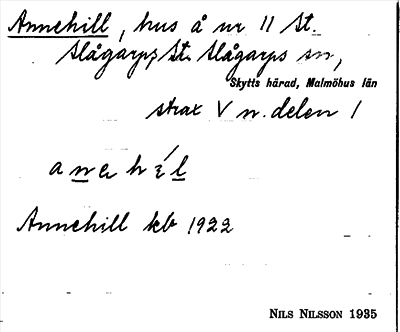 Annehill, hus å nr 11 St.
Slågarp, St. Slågarps sn,
Skytts härad, Malmöhus län
strax V n. delen /
a n e h i l
Annehill kb 1922
NILS NILSSON 1935